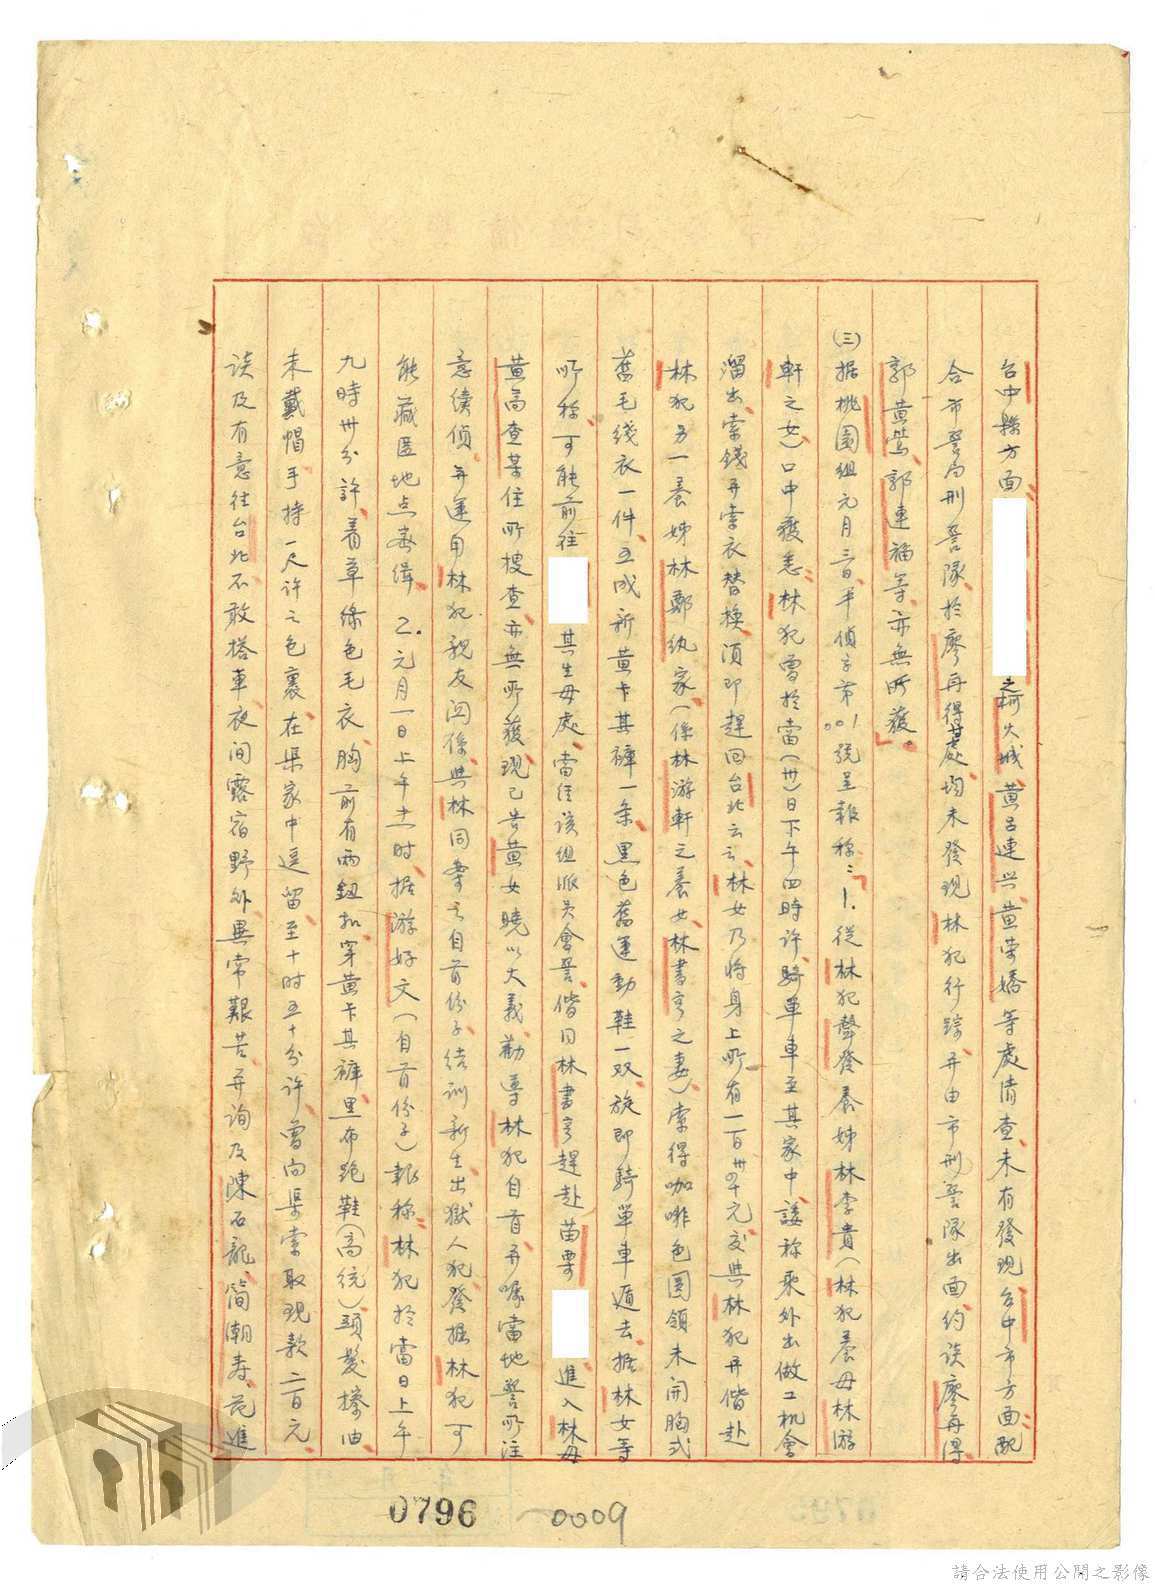 台中縣方面之柯火城、黃呂連兴、黃荣嬌等處清查未有發現、台中市方面、配
合市警局刑警隊、於廖再得其處、均未發現林犯行踪、并由市刑警隊出面約談廖再得、
郭黃鶯、郭連福等、亦無所獲」。
(三)据桃園組元月三日半偵字第001號呈報称:「1.從林犯聲發養姊林李貴(林犯養母林游
軒之女)口中獲悉、林犯曾於當(卅)日下午四時許、騎單車至其家中、諉称乘外出做工机會
溜出、索錢并索衣替換、須即趕回台北云云、林女乃將身上所有一百卅元交與林犯并偕赴
林犯另一養姊林鄭紈家(係林游軒之養女、林書亨之妻)索得咖啡色圓領未開胸式
舊毛綫衣一件、五成新黃卡其褲一条、黑色舊運動鞋一双、旋即騎单車遁去、据林女等
所称、可能前往其生母處、當經該組派员會警偕同林書亨趕赴苗栗進入林母
黃高查某住所搜查、亦無所獲、現已告黃女曉以大義、勸導林犯自首、并囑當地警所注
意續偵、并運用林犯親友关係與林同案之自首份子、結訓新生出獄人犯發掘林犯可
能藏匿地点查缉、2.元月一日上午十一时、据游好文(自首份子)報称、林犯於當日上午
九時卅分許、着草綠色毛衣、胸前有兩鈕扣、穿黃卡其褲、黑布跑鞋(高统)頭髮擦油、
未戴帽、手持一尺許之色裹、在渠家中逗留至十时五十分許、曾向渠索取現款二百元、
談及有意往台北、不敢搭車、夜间露宿野外、異常艱苦、并詢及陳石龍、簡潮寿、范進
0796
0009
請合法使用公開之影像